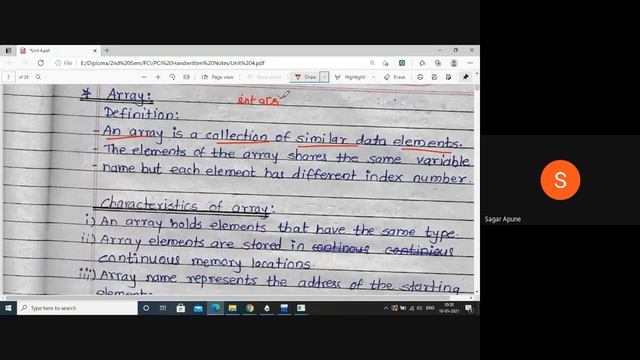 *Unit 4.pdf
E:/Diploma/2nd%20Sem/PCI/PCI%20Handwritten%20Notes/Unit%204.pdf
2 of 26
Page view
Read aloud
Add text
Draw
Highlight
Erase
* Array:
int a[5
Definition:
- An array is a collection of similar data elements.
- The elements of the array shares the same variable
- name but each element has different index number.
Characteristics of array:
i) An array holds elements that have the same type.
ii) Array elements are stored in continous continious
continuous memory locations.
iii) Array name represents the address of the starting
element.
S
Sagar Apune
Type here to search
ENG
10:30
18-05-2021